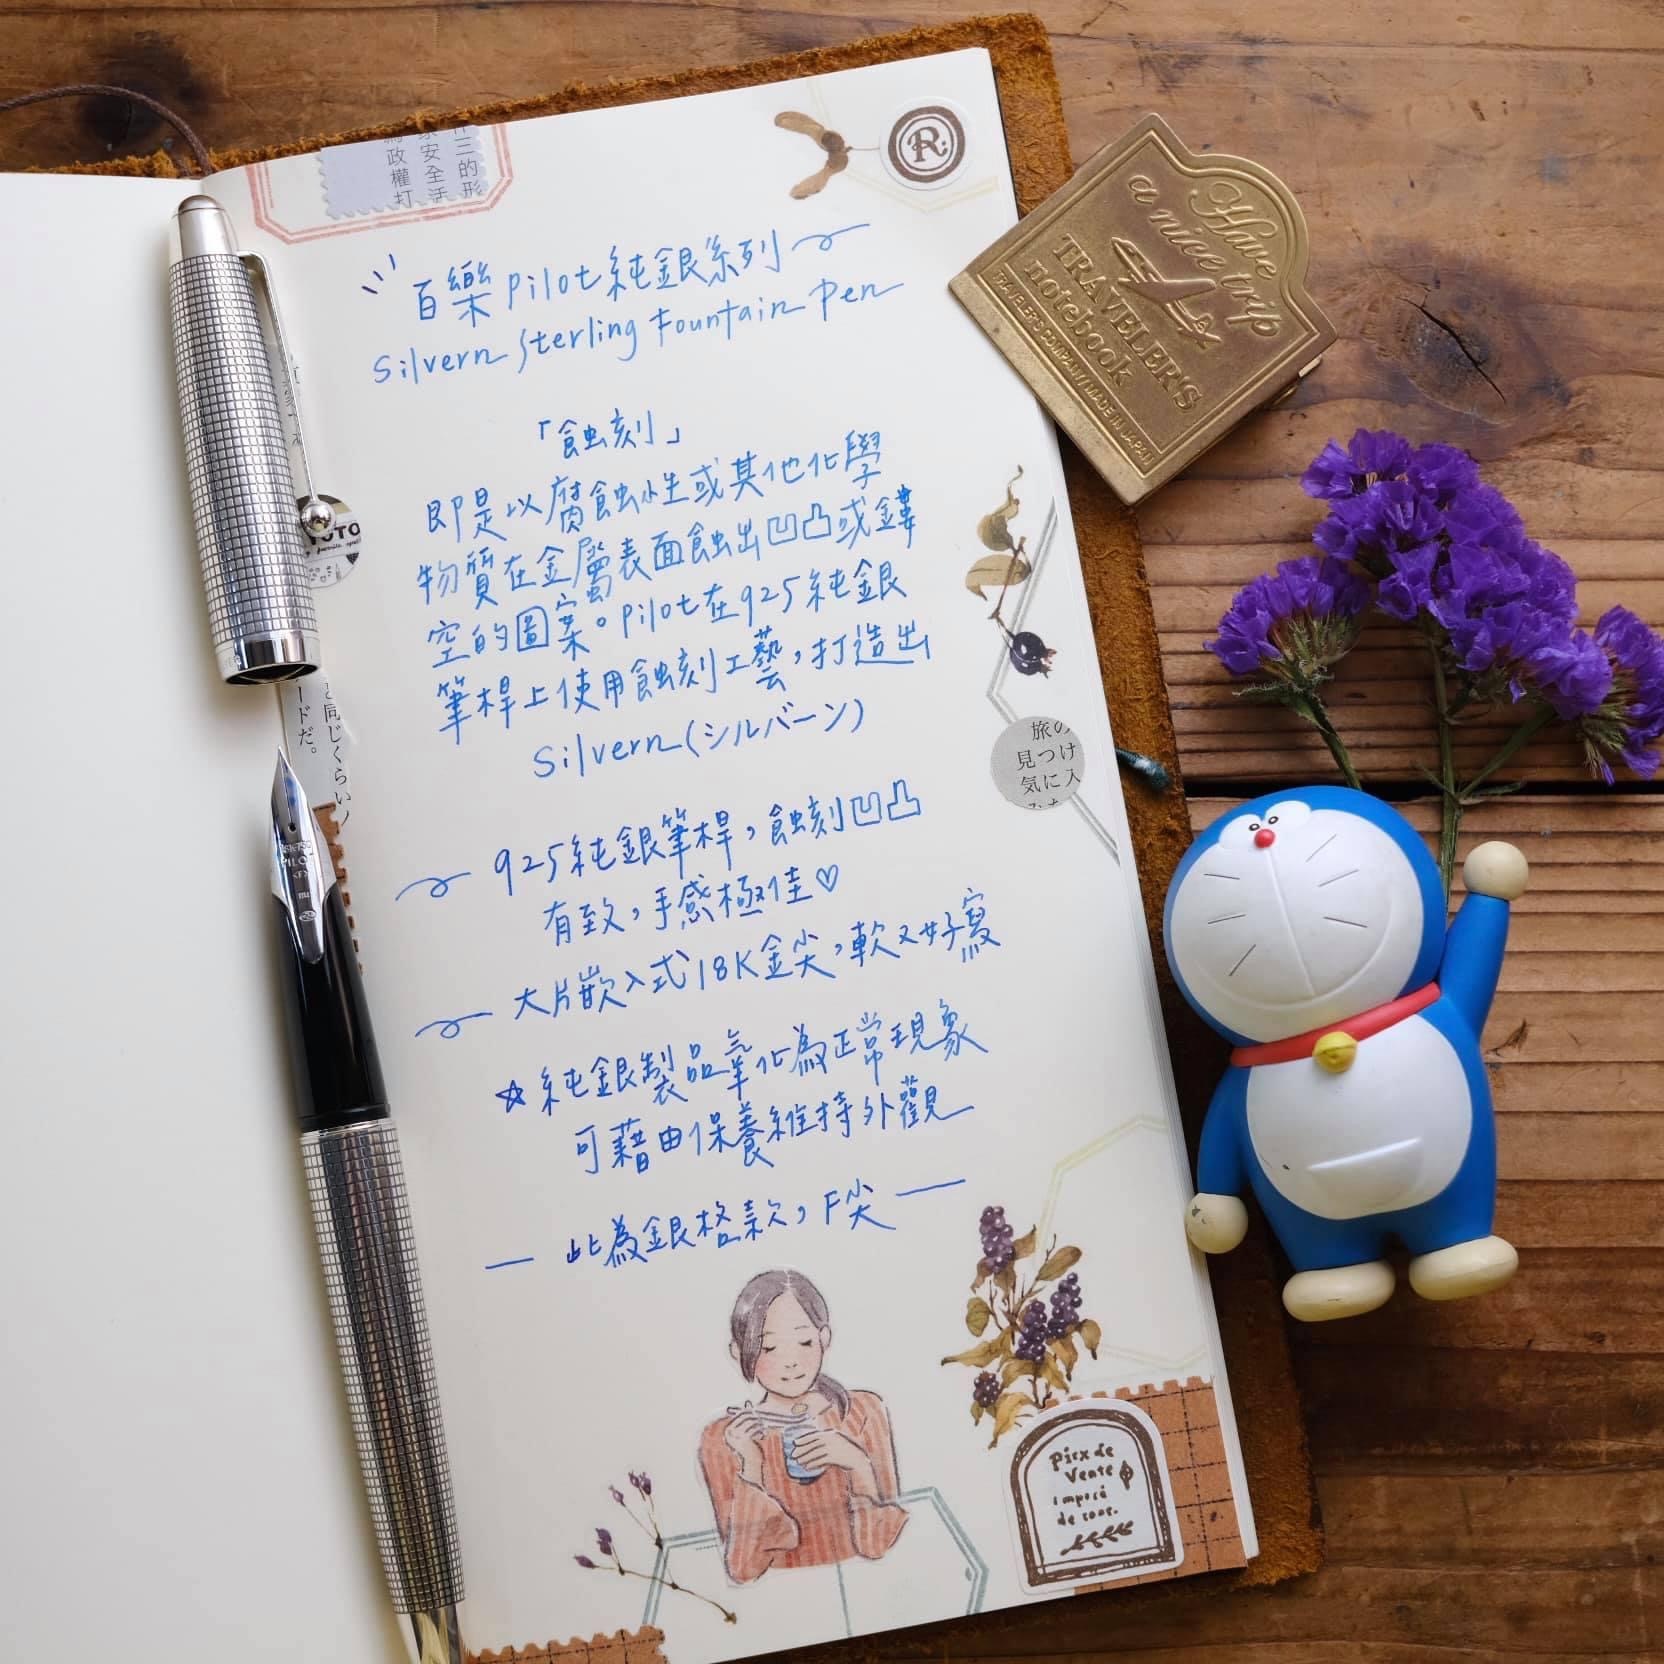 作三的形
家安全活
為政權打
R.
百樂pilot純銀系列
Silvern Sterling Fountain Pen
「蝕刻」
即是以腐蝕性或其他化學
物質在金屬表面蝕出凹凸或鏤
空的圖案。pilot在925純銀
筆桿上使用蝕刻工藝，打造出
Silvern(シルバーン)
925純銀筆桿，蝕刻凹凸
有致，手感極佳♡
大片嵌入式18K金尖，軟又好寫
☆純銀製品氧化為正常現象
可藉由保養維持外觀
— 此為銀格款，F尖 —
Have
a nice trip
TRAVELER'S
notebook
TRAVELER'S COMPANY/MADE IN JAPAN
旅の
見つけ
気に入
同じくらい
ードだ。
PILOT
Prix de
Vente
imposé
de zone.